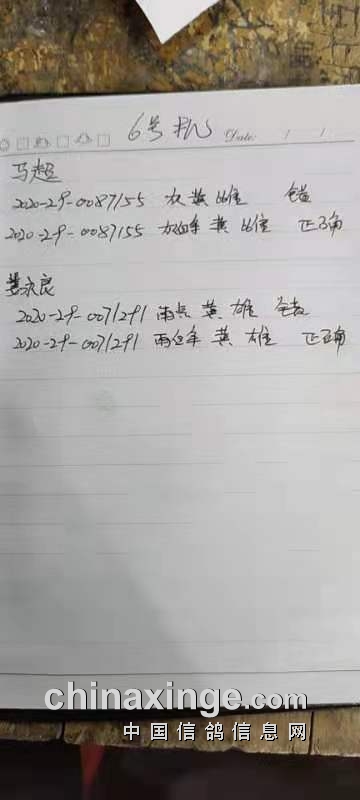 6号
Date: / /
马超
2020-29-0087155 灰 黄 雌 错
2020-29-0087155 灰白条 黄 雌 正确
姜永良
2020-29-0071291 雨点 黄 雄 错
2020-29-0071291 雨白条 黄 雄 正确
chinaxinge.com
中国信鸽信息网